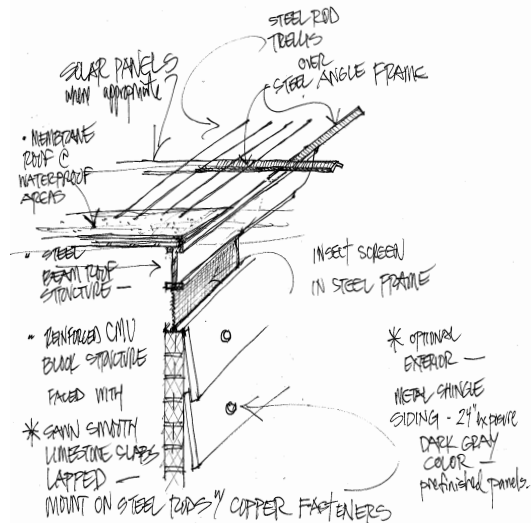 STEEL ROD
TRELLIS
OVER
STEEL ANGLE FRAME
SOLAR PANELS
where appropriate
• MEMBRANE
ROOF @
WATERPROOF
AREAS
" STEEL
BEAM ROOF
STRUCTURE —
INSECT SCREEN
IN STEEL FRAME
" REINFORCED CMU
BLOCK STRUCTURE
FACED WITH
* SAWN SMOOTH
LIMESTONE SLABS
LAPPED —
MOUNT ON STEEL RODS W/ COPPER FASTENERS
* OPTIONAL
EXTERIOR —
METAL SHINGLE
SIDING - 24" exposure
DARK GRAY
COLOR —
prefinished panels.